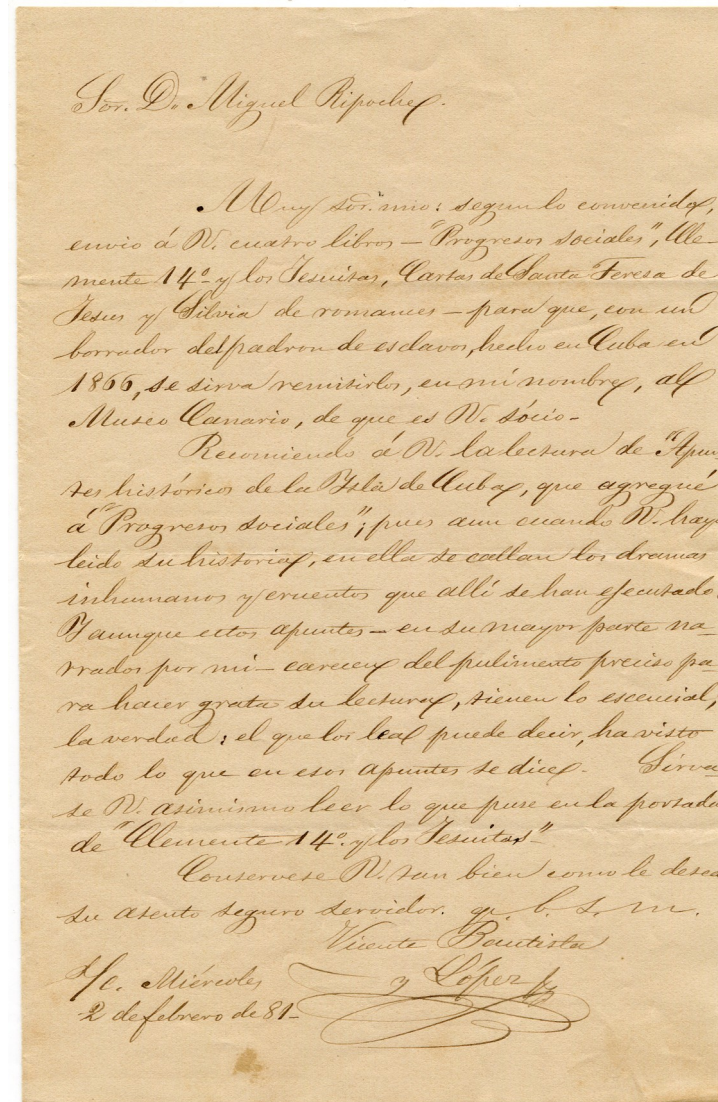 Sor. Dn. Miguel Ripoche.
Muy sor. mio: segun lo convenido,
envio á V. cuatro libros — "Progresos sociales", Cle-
mente 14º y los Jesuitas, Cartas de Santa Teresa de
Jesus y Silvia de romances — para que, con un
borrador del padron de esclavos, hecho en Cuba en
1866, se sirva remitirlos, en mi nombre, al
Museo Canario, de que es V. sócio-
Recomiendo á V. la lectura de "Apun
tes históricos de la Isla de Cuba, que agregué
á "Progresos sociales"; pues aun cuando V. haya
leido su historia, en ella se callan los dramas
inhumanos y cruentos que allí se han ejecutado.
Y aunque estos apuntes — en su mayor parte na-
rrados por mi — carecen del pulimento preciso pa-
ra hacer grata su lectura, tienen lo escencial,
la verdad: el que los lea puede decir, ha visto
todo lo que en esos apuntes se dice. Sirva
se V. asimismo leer lo que puse en la portada
de "Clemente 14º y los Jesuitas"-
Conservese V. tan bien como le desea
su atento seguro servidor. q. b. s. m.
Vicente Bautista
y López
S/c. Miércoles
2 de febrero de 81-